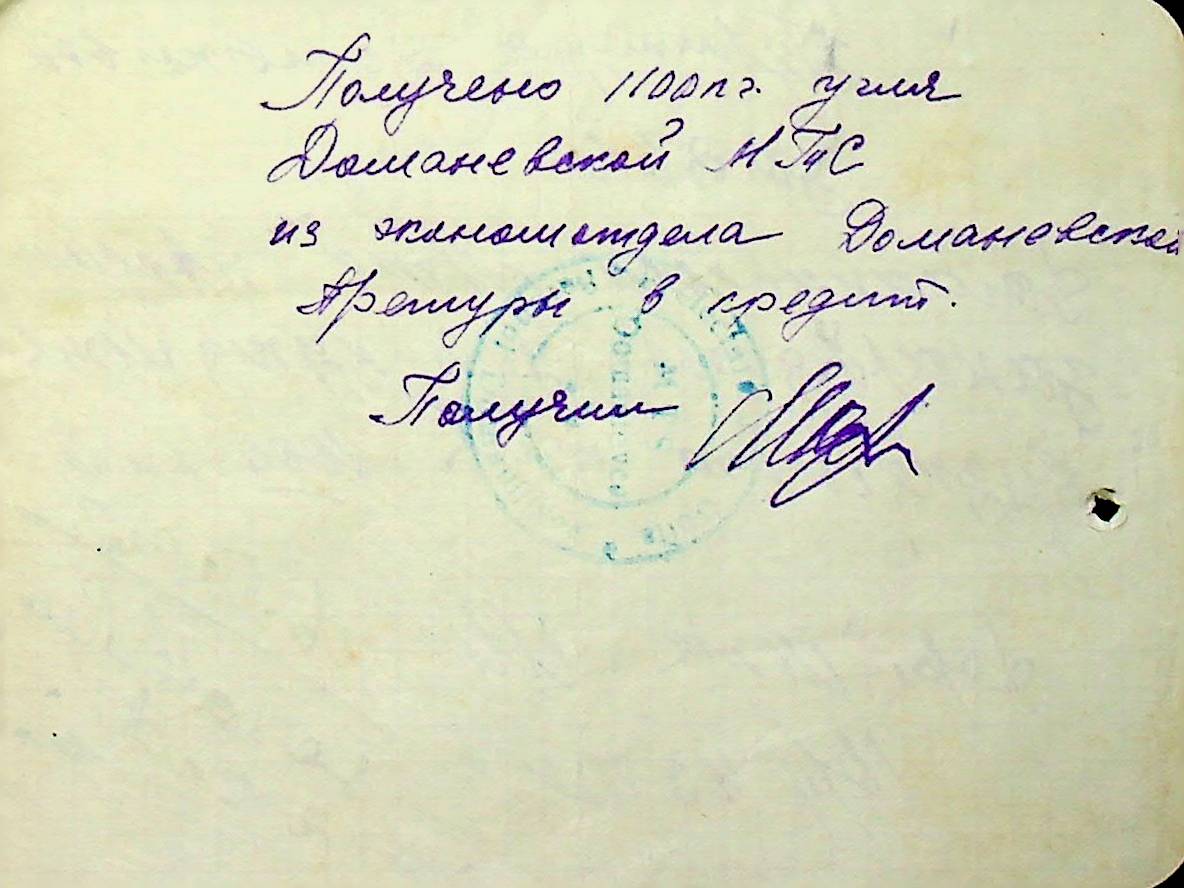 Получено 1100 кг. угля
Доманевской МТС
из экономотдела Доманевской
Претуры в кредит.
Получил